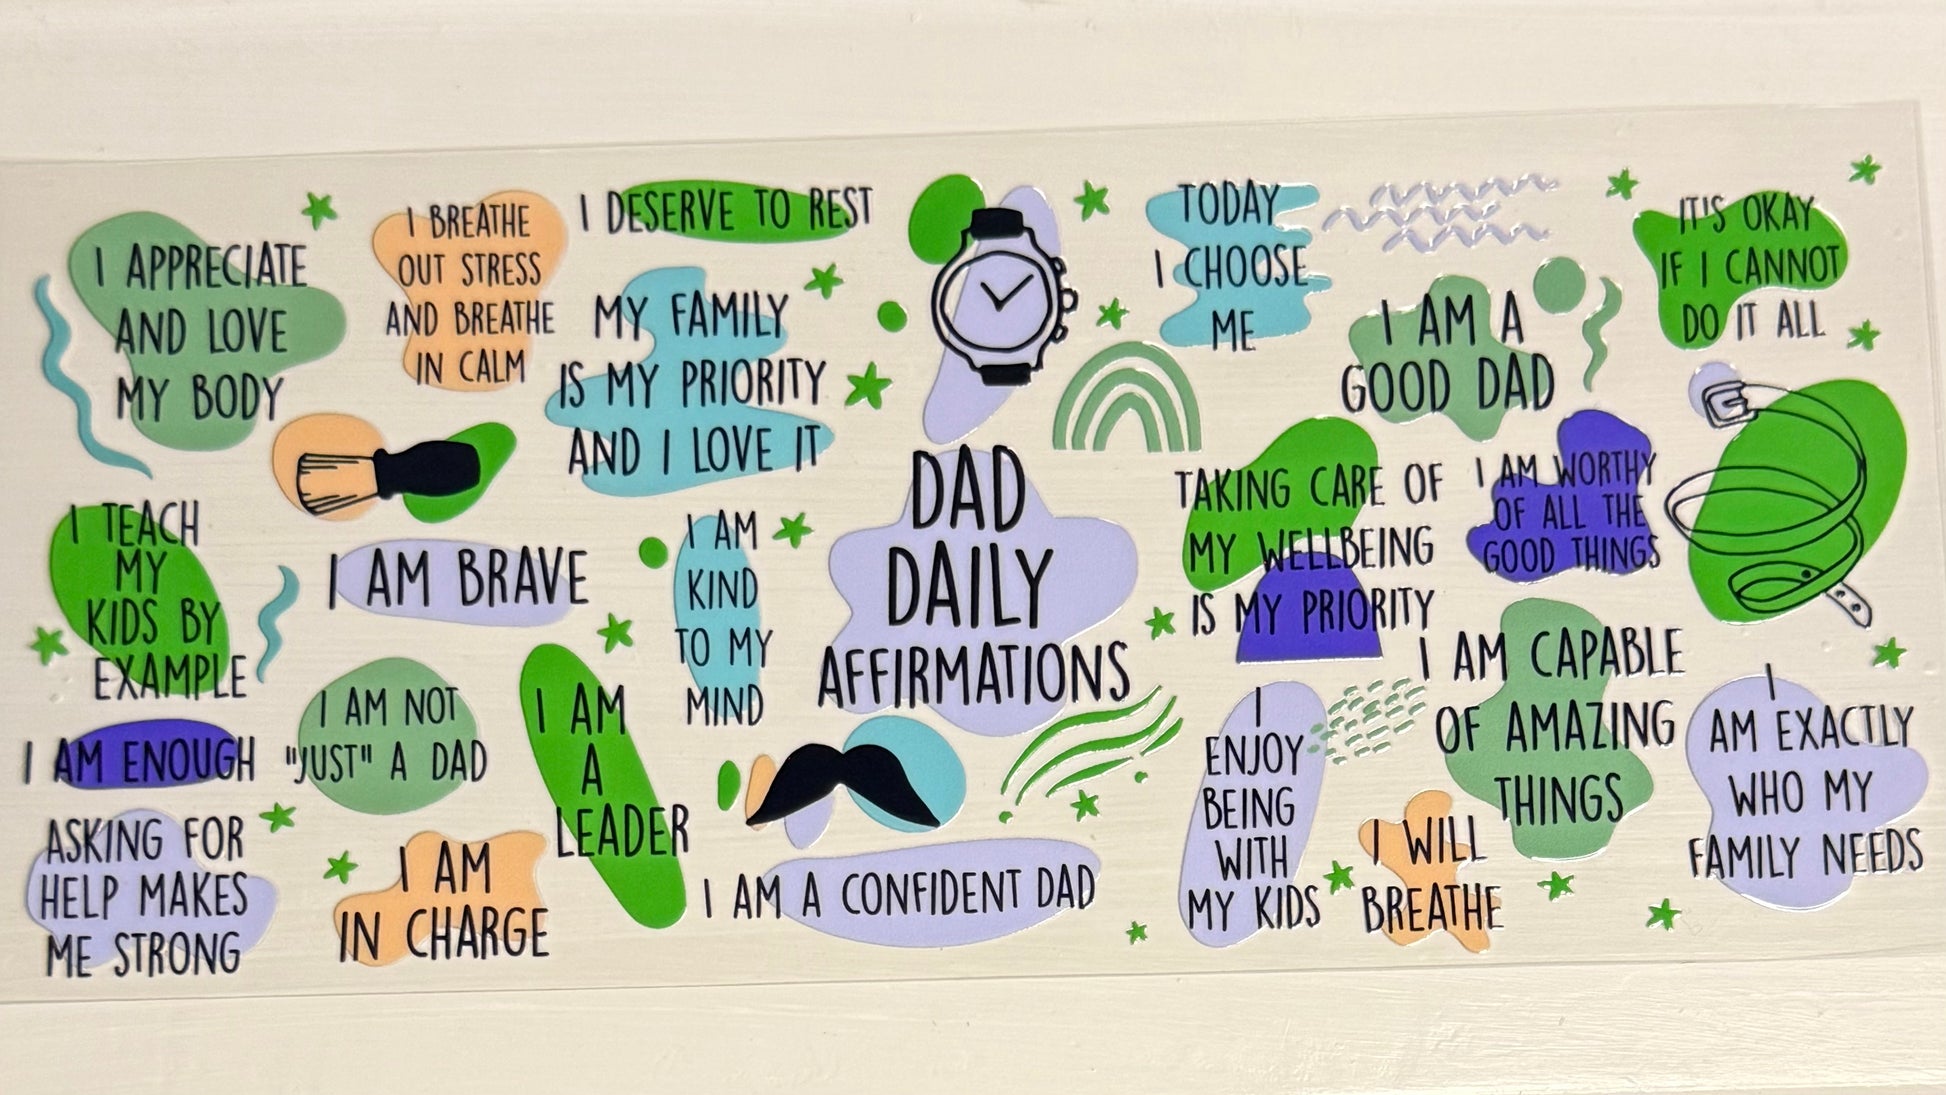 I APPRECIATE
AND LOVE
MY BODY
I BREATHE
OUT STRESS
AND BREATHE
IN CALM
I DESERVE TO REST
MY FAMILY
IS MY PRIORITY
AND I LOVE IT
TODAY
I CHOOSE
ME
I AM A
GOOD DAD
IT'S OKAY
IF I CANNOT
DO IT ALL
I TEACH
MY
KIDS BY
EXAMPLE
I AM BRAVE
I AM
KIND
TO MY
MIND
DAD
DAILY
AFFIRMATIONS
TAKING CARE OF
MY WELLBEING
IS MY PRIORITY
I AM WORTHY
OF ALL THE
GOOD THINGS
I AM ENOUGH
I AM NOT
"JUST" A DAD
I AM
A
LEADER
I AM CAPABLE
OF AMAZING
THINGS
I
AM EXACTLY
WHO MY
FAMILY NEEDS
ASKING FOR
HELP MAKES
ME STRONG
I AM
IN CHARGE
I AM A CONFIDENT DAD
I
ENJOY
BEING
WITH
MY KIDS
I WILL
BREATHE